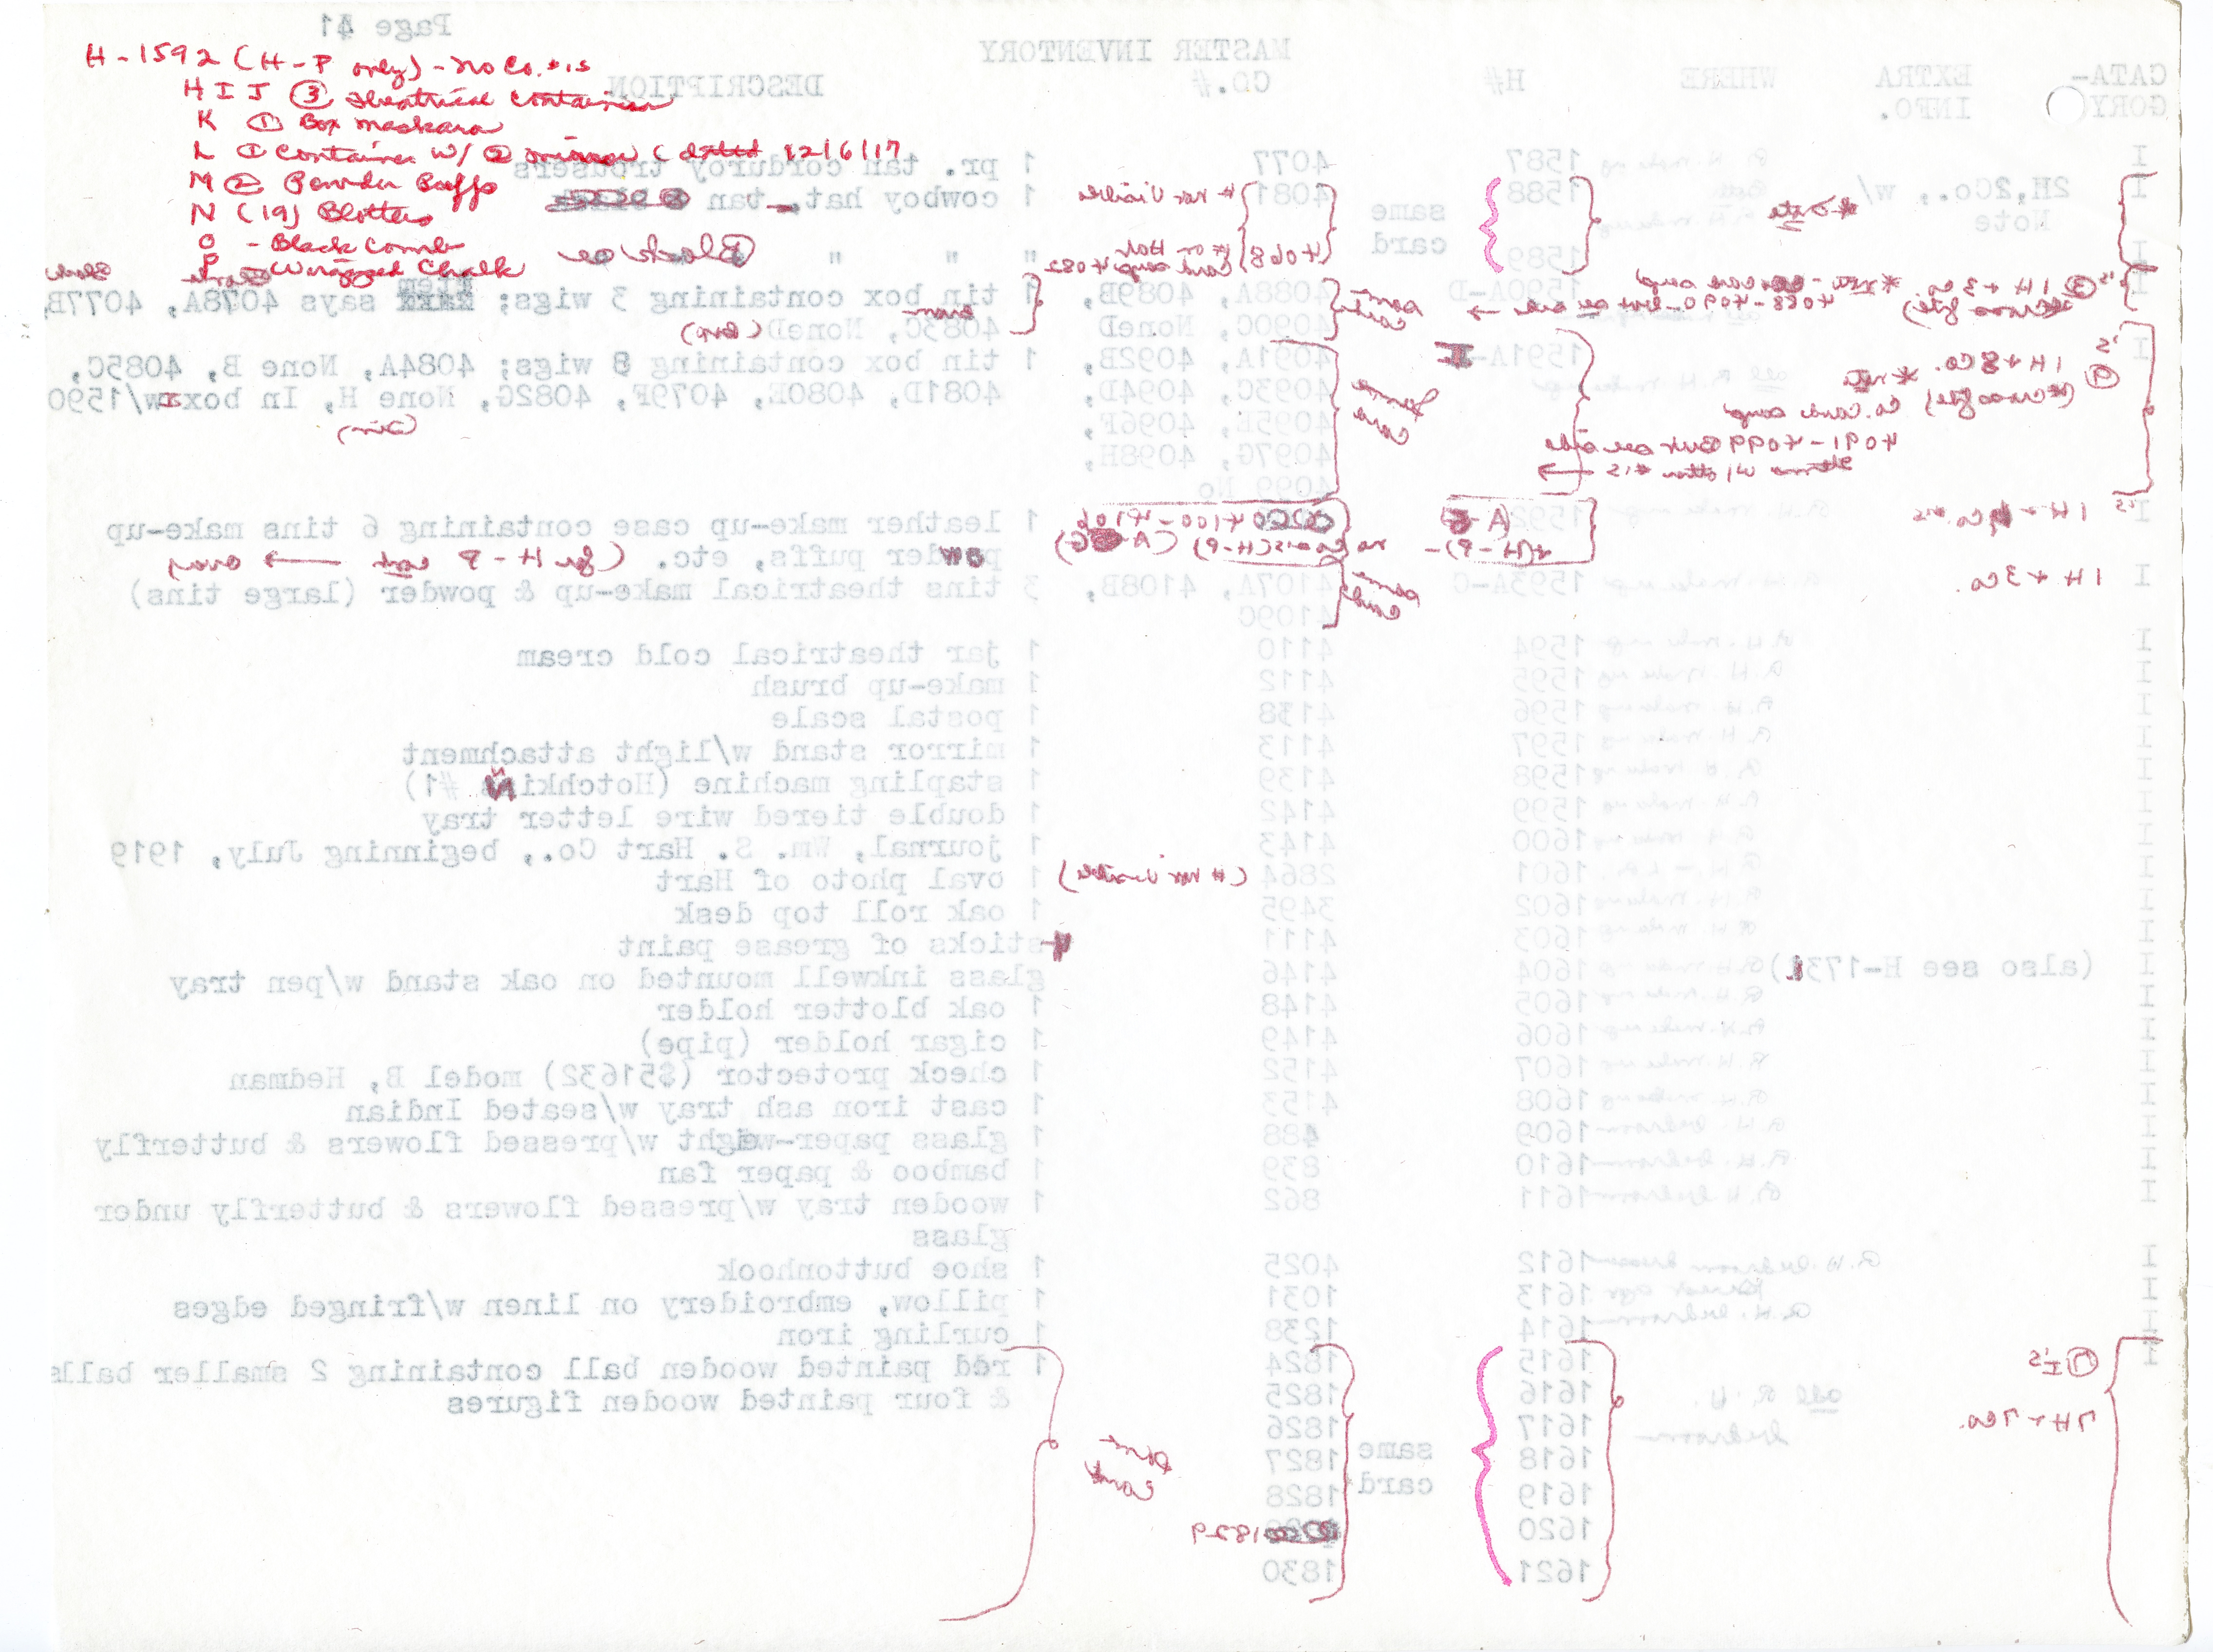 H-1592 (H-P only) - no Co. #'s
H I J ③ theatrical containers
K ① Box maskara
L ① Container w/ ② mirror (dated 12/6/17
M ② Powder Puffs
N (19) Blotters
O - Black Comb
P - Wrapped Chalk
Page 41
MASTER INVENTORY
CATA-GORY EXTRA INFO. WHERE H# CO.# DESCRIPTION
I 1587 4077 1 pr. tan corduroy trousers
I 2H,2Co., w/ Note 1588 same card 4081 # not visible 1 cowboy hat, tan
I 1589 (4068) 4082 " " " Black
I 1H + 3 Co. 1590A-D same card 4088A, 4089B, 1 tin box containing 3 wigs; item says 4078A, 4077B,
4090C, NoneD 4083C, NoneD
I 1H + 8 Co. 1591A- same card 4091A, 4092B, 1 tin box containing 8 wigs; 4084A, None B, 4085C,
4093C, 4094D, 4081D, 4080E, 4079F, 4082G, None H, In box w/1590
4095E, 4096F,
4097G, 4098H,
4099 No
Co. Cards comp
4091-4099 But see
items w/ other #'s
I 1592 (A-G) (H-P) 04100-4106 1 leather make-up case containing 6 tins make-up
no Co #'s (H-P) powder puffs, etc. (for H-P over)
I 1H + 3 Co. 1593A-C same card 4107A, 4108B, 3 tins theatrical make-up & powder (large tins)
4109C
I 1594 4110 1 jar theatrical cold cream
I 1595 4112 1 make-up brush
I 1596 4138 1 postal scale
I 1597 4113 1 mirror stand w/light attachment
I 1598 4139 1 stapling machine (Hotchkiss #1)
I 1599 4142 1 double tiered wire letter tray
I 1600 4143 1 journal, Wm. S. Hart Co., beginning July, 1919
I 1601 2864 (# not visible) 1 oval photo of Hart
I 1602 3495 1 oak roll top desk
I 1603 4111 4 sticks of grease paint
I (also see H-1731) 1604 4146 glass inkwell mounted on oak stand w/pen tray
I 1605 4148 1 oak blotter holder
I 1606 4149 1 cigar holder (pipe)
I 1607 4152 1 check protector ($51632) model B, Hedman
I 1608 4153 1 cast iron ash tray w/seated Indian
I 1609 488 1 glass paper-weight w/pressed flowers & butterfly
I 1610 839 1 bamboo & paper fan
I 1611 862 1 wooden tray w/pressed flowers & butterfly under
glass
I 1612 4025 1 shoe buttonhook
I 1613 1031 1 pillow, embroidery on linen w/fringed edges
I 1614 1238 1 curling iron
I ⑦ I's 1615 1824 1 red painted wooden ball containing 2 smaller balls
all R. H. 1616 1825 & four painted wooden figures
7H + 7Co. bedroom 1617 1826
1618 same 1827 same card
1619 card 1828
1620 1829
1621 1830